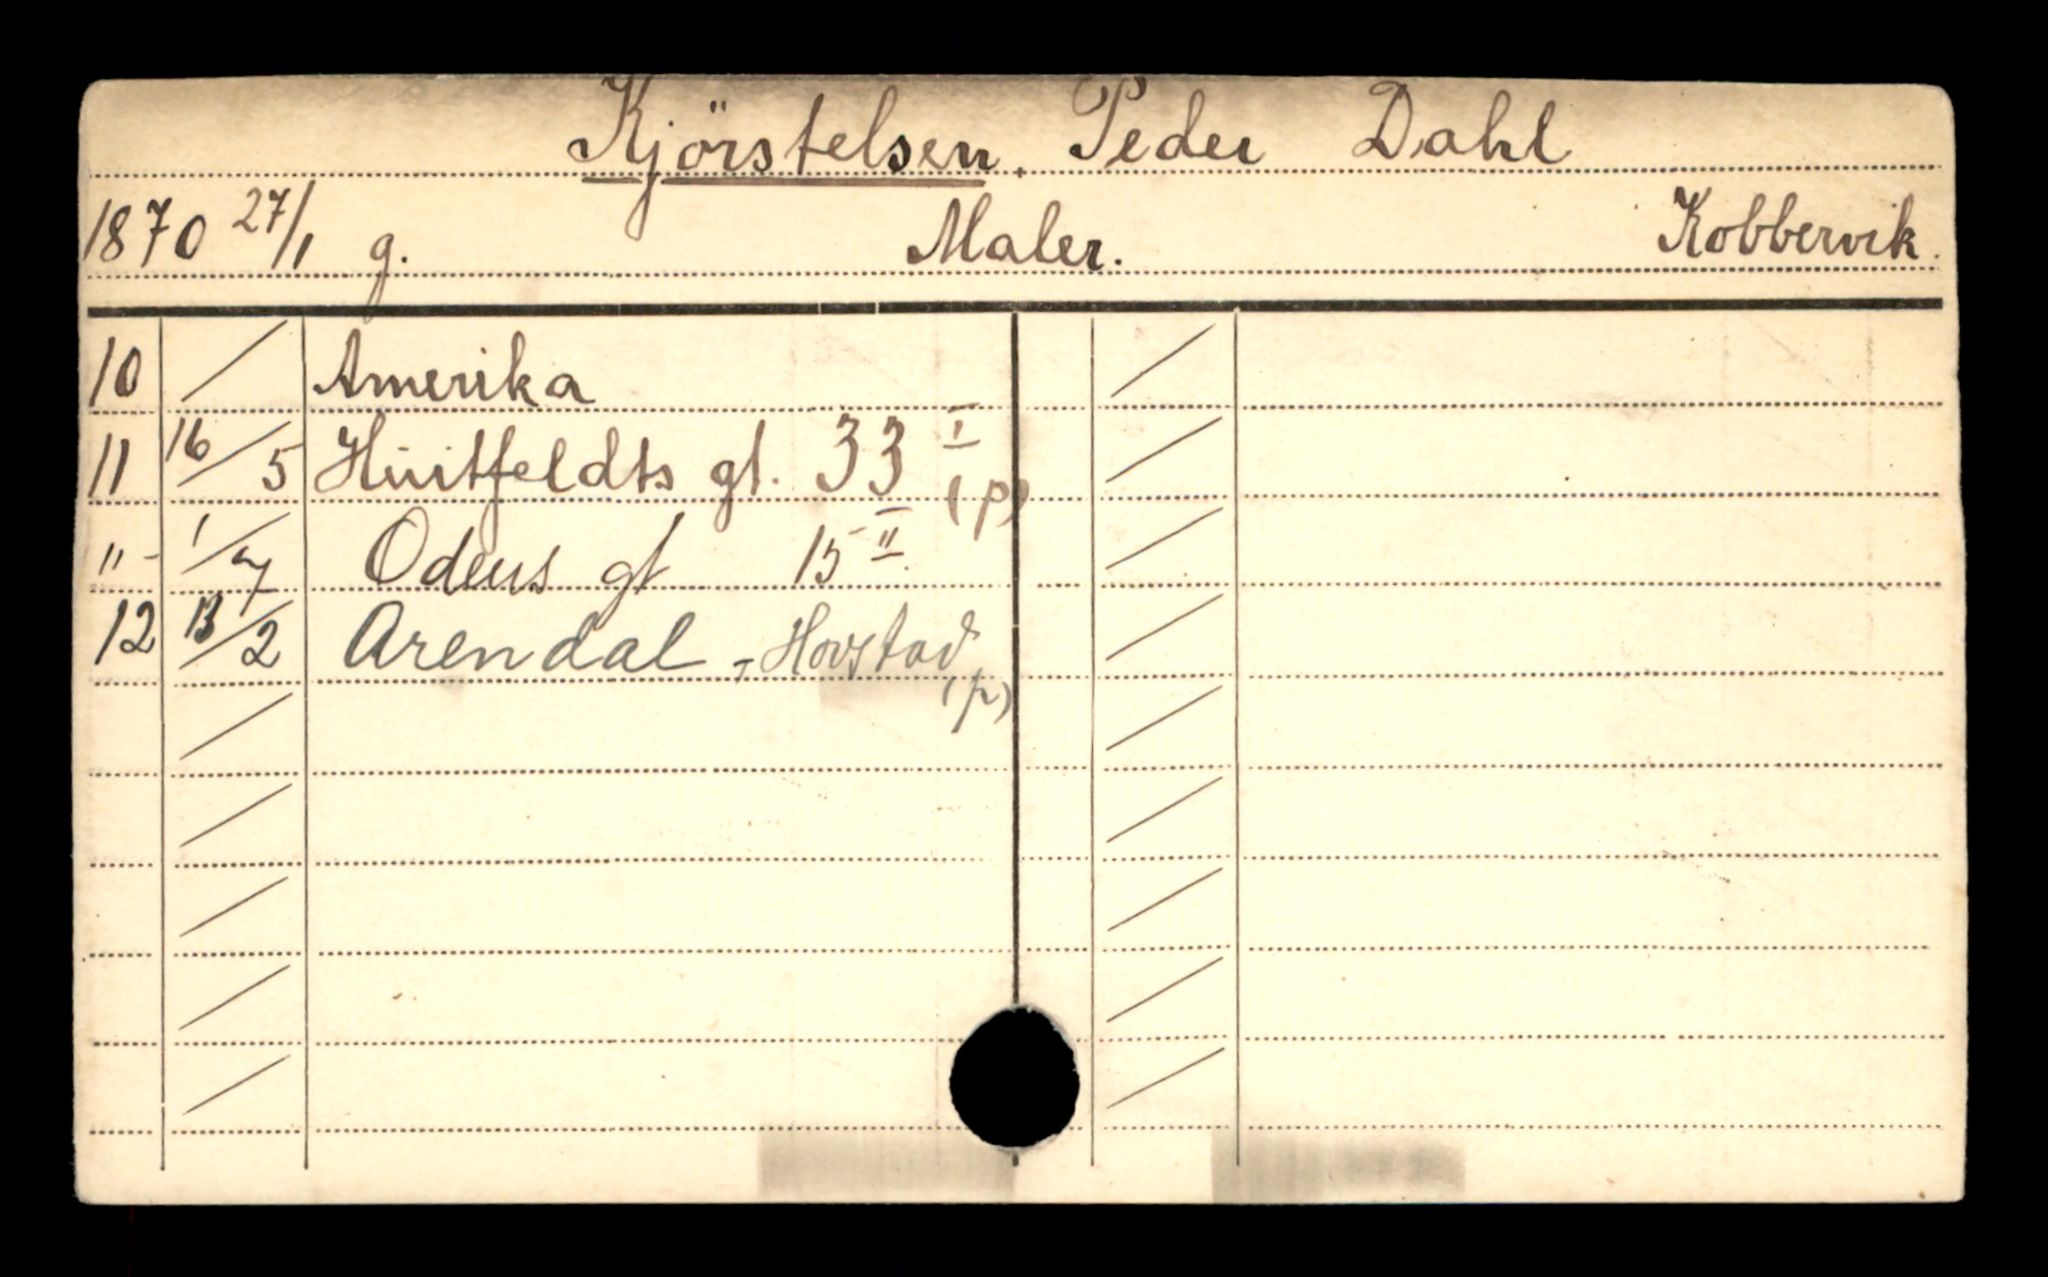 Kjörstelsen, Peder Dahl
1870 27/1 g. Maler. Kobbervik.
10 / Amerika
11 16/5 Huitfeldts gt. 33 I (p)
"- 1/7 Odens gt 15 II.
12 13/2 Arendal, Hovstad (p)